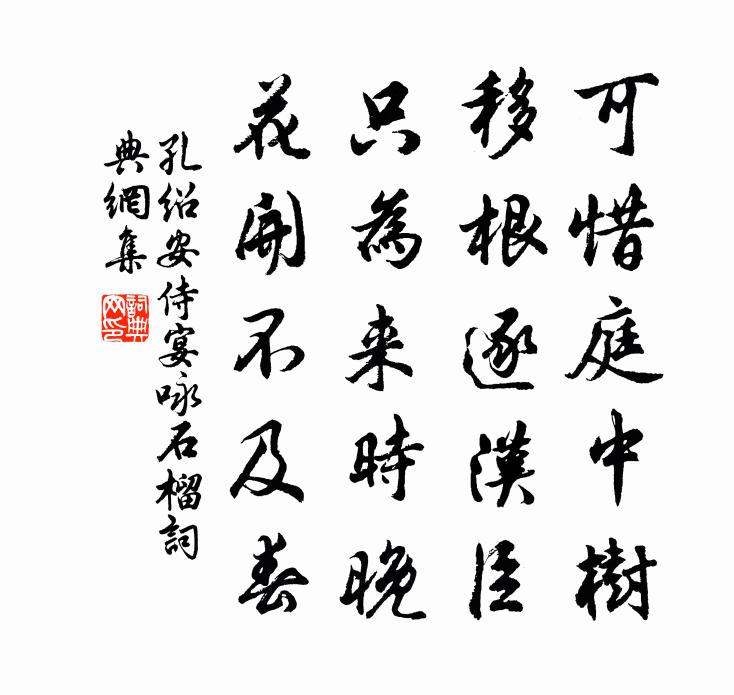 可惜庭中樹
移根逐漢臣
只為来時晚
花開不及春
孔紹安侍宴咏石榴詞
典網集
詞典網印